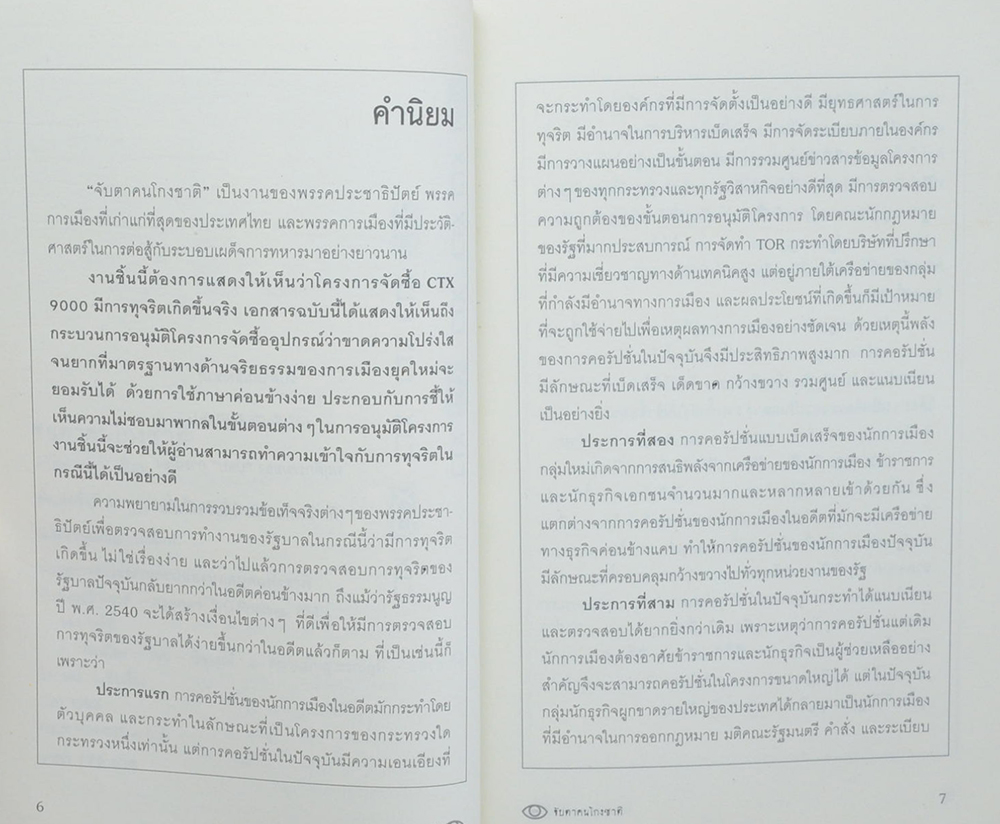 คำนิยม
“จับตาคนโกงชาติ” เป็นงานของพรรคประชาธิปัตย์ พรรค
การเมืองที่เก่าแก่ที่สุดของประเทศไทย และพรรคการเมืองที่มีประวัติ-
ศาสตร์ในการต่อสู้กับระบอบเผด็จการทหารมาอย่างยาวนาน
งานชิ้นนี้ต้องการแสดงให้เห็นว่าโครงการจัดซื้อ CTX
9000 มีการทุจริตเกิดขึ้นจริง เอกสารฉบับนี้ได้แสดงให้เห็นถึง
กระบวนการอนุมัติโครงการจัดซื้ออุปกรณ์ว่าขาดความโปร่งใส
จนยากที่มาตรฐานทางด้านจริยธรรมของการเมืองยุคใหม่จะ
ยอมรับได้ ด้วยการใช้ภาษาค่อนข้างง่าย ประกอบกับการชี้ให้
เห็นความไม่ชอบมาพากลในขั้นตอนต่างๆในการอนุมัติโครงการ
งานชิ้นนี้จะช่วยให้ผู้อ่านสามารถทำความเข้าใจกับการทุจริตใน
กรณีนี้ได้เป็นอย่างดี
ความพยายามในการรวบรวมข้อเท็จจริงต่างๆของพรรคประชา-
ธิปัตย์เพื่อตรวจสอบการทำงานของรัฐบาลในกรณีนี้ว่ามีการทุจริต
เกิดขึ้น ไม่ใช่เรื่องง่าย และว่าไปแล้วการตรวจสอบการทุจริตของ
รัฐบาลปัจจุบันกลับยากกว่าในอดีตค่อนข้างมาก ถึงแม้ว่ารัฐธรรมนูญ
ปี พ.ศ. 2540 จะได้สร้างเงื่อนไขต่างๆ ที่ดีเพื่อให้มีการตรวจสอบ
การทุจริตของรัฐบาลได้ง่ายขึ้นกว่าในอดีตแล้วก็ตาม ที่เป็นเช่นนี้ก็
เพราะว่า
ประการแรก การคอรัปชั่นของนักการเมืองในอดีตมักกระทำโดย
ตัวบุคคล และกระทำในลักษณะที่เป็นโครงการของกระทรวงใด
กระทรวงหนึ่งเท่านั้น แต่การคอรัปชั่นในปัจจุบันมีความเอนเอียงที่
6
จะกระทำโดยองค์กรที่มีการจัดตั้งเป็นอย่างดี มียุทธศาสตร์ในการ
ทุจริต มีอำนาจในการบริหารเบ็ดเสร็จ มีการจัดระเบียบภายในองค์กร
มีการวางแผนอย่างเป็นขั้นตอน มีการรวมศูนย์ข่าวสารข้อมูลโครงการ
ต่างๆของทุกกระทรวงและทุกรัฐวิสาหกิจอย่างดีที่สุด มีการตรวจสอบ
ความถูกต้องของขั้นตอนการอนุมัติโครงการ โดยคณะนักกฎหมาย
ของรัฐที่มากประสบการณ์ การจัดทำ TOR กระทำโดยบริษัทที่ปรึกษา
ที่มีความเชี่ยวชาญทางด้านเทคนิคสูง แต่อยู่ภายใต้เครือข่ายของกลุ่ม
ที่กำลังมีอำนาจทางการเมือง และผลประโยชน์ที่เกิดขึ้นก็มีเป้าหมาย
ที่จะถูกใช้จ่ายไปเพื่อเหตุผลทางการเมืองอย่างชัดเจน ด้วยเหตุนี้พลัง
ของการคอรัปชั่นในปัจจุบันจึงมีประสิทธิภาพสูงมาก การคอรัปชั่น
มีลักษณะที่เบ็ดเสร็จ เด็ดขาด กว้างขวาง รวมศูนย์ และแนบเนียน
เป็นอย่างยิ่ง
ประการที่สอง การคอรัปชั่นแบบเบ็ดเสร็จของนักการเมือง
กลุ่มใหม่เกิดจากการสนธิพลังจากเครือข่ายของนักการเมือง ข้าราชการ
และนักธุรกิจเอกชนจำนวนมากและหลากหลายเข้าด้วยกัน ซึ่ง
แตกต่างจากการคอรัปชั่นของนักการเมืองในอดีตที่มักจะมีเครือข่าย
ทางธุรกิจค่อนข้างแคบ ทำให้การคอรัปชั่นของนักการเมืองปัจจุบัน
มีลักษณะที่ครอบคลุมกว้างขวางไปทั่วทุกหน่วยงานของรัฐ
ประการที่สาม การคอรัปชั่นในปัจจุบันกระทำได้แนบเนียน
และตรวจสอบได้ยากยิ่งกว่าเดิม เพราะเหตุว่าการคอรัปชั่นแต่เดิม
นักการเมืองต้องอาศัยข้าราชการและนักธุรกิจเป็นผู้ช่วยเหลืออย่าง
สำคัญจึงจะสามารถคอรัปชั่นในโครงการขนาดใหญ่ได้ แต่ในปัจจุบัน
กลุ่มนักธุรกิจผูกขาดรายใหญ่ของประเทศได้กลายมาเป็นนักการเมือง
ที่มีอำนาจในการออกกฎหมาย มติคณะรัฐมนตรี คำสั่ง และระเบียบ
จับตาคนโกงชาติ
7